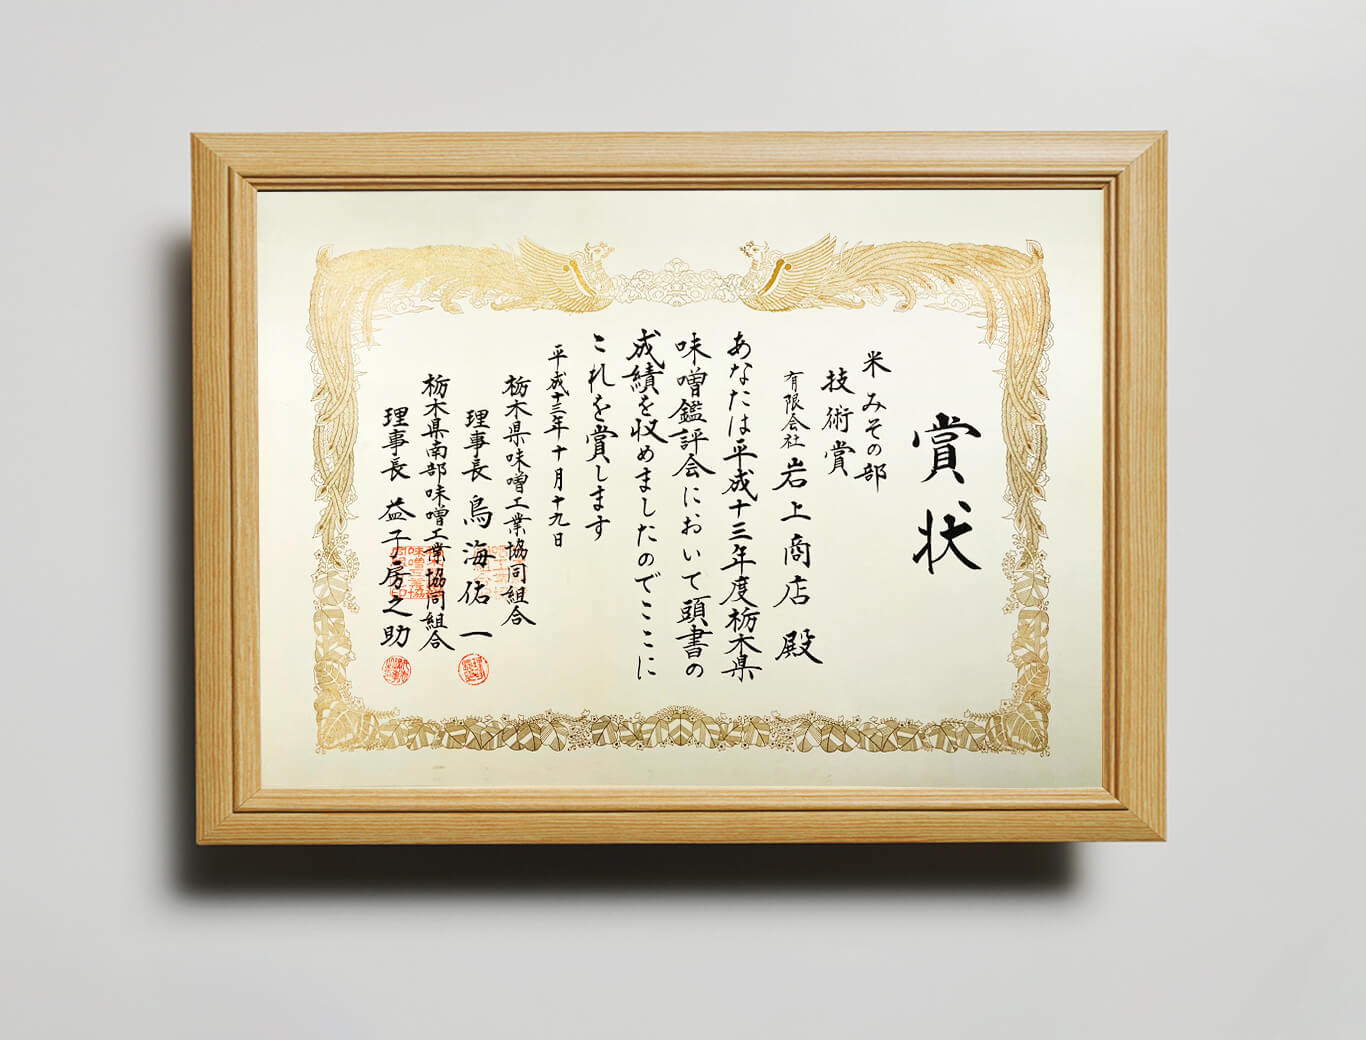 賞状
米みその部
技術賞
有限会社 岩上商店 殿
あなたは平成十三年度栃木県
味噌鑑評会において頭書の
成績を収めましたのでここに
これを賞します
平成十三年十月十九日
栃木県味噌工業協同組合
理事長 鳥海佑一
栃木県南部味噌工業協同組合
理事長 益子房之助